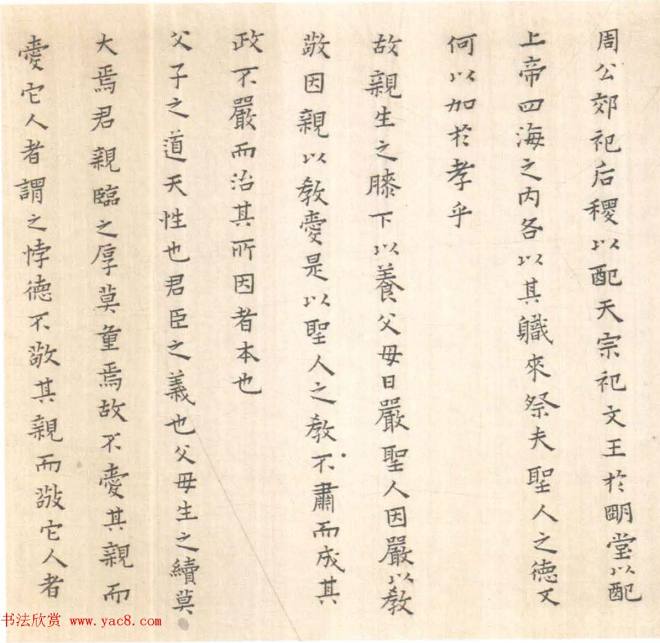 周公郊祀后稷以配天宗祀文王於明堂以配
上帝四海之内各以其軄來祭夫聖人之德又
何以加於孝乎
故親生之膝下以養父母日嚴聖人因嚴以教
敬因親以教愛是以聖人之教不肅而成其
政不嚴而治其所因者本也
父子之道天性也君臣之義也父母生之續莫
大焉君親臨之厚莫重焉故不愛其親而
愛它人者謂之悖德不敬其親而敬它人者
书法欣赏 www.yac8.com